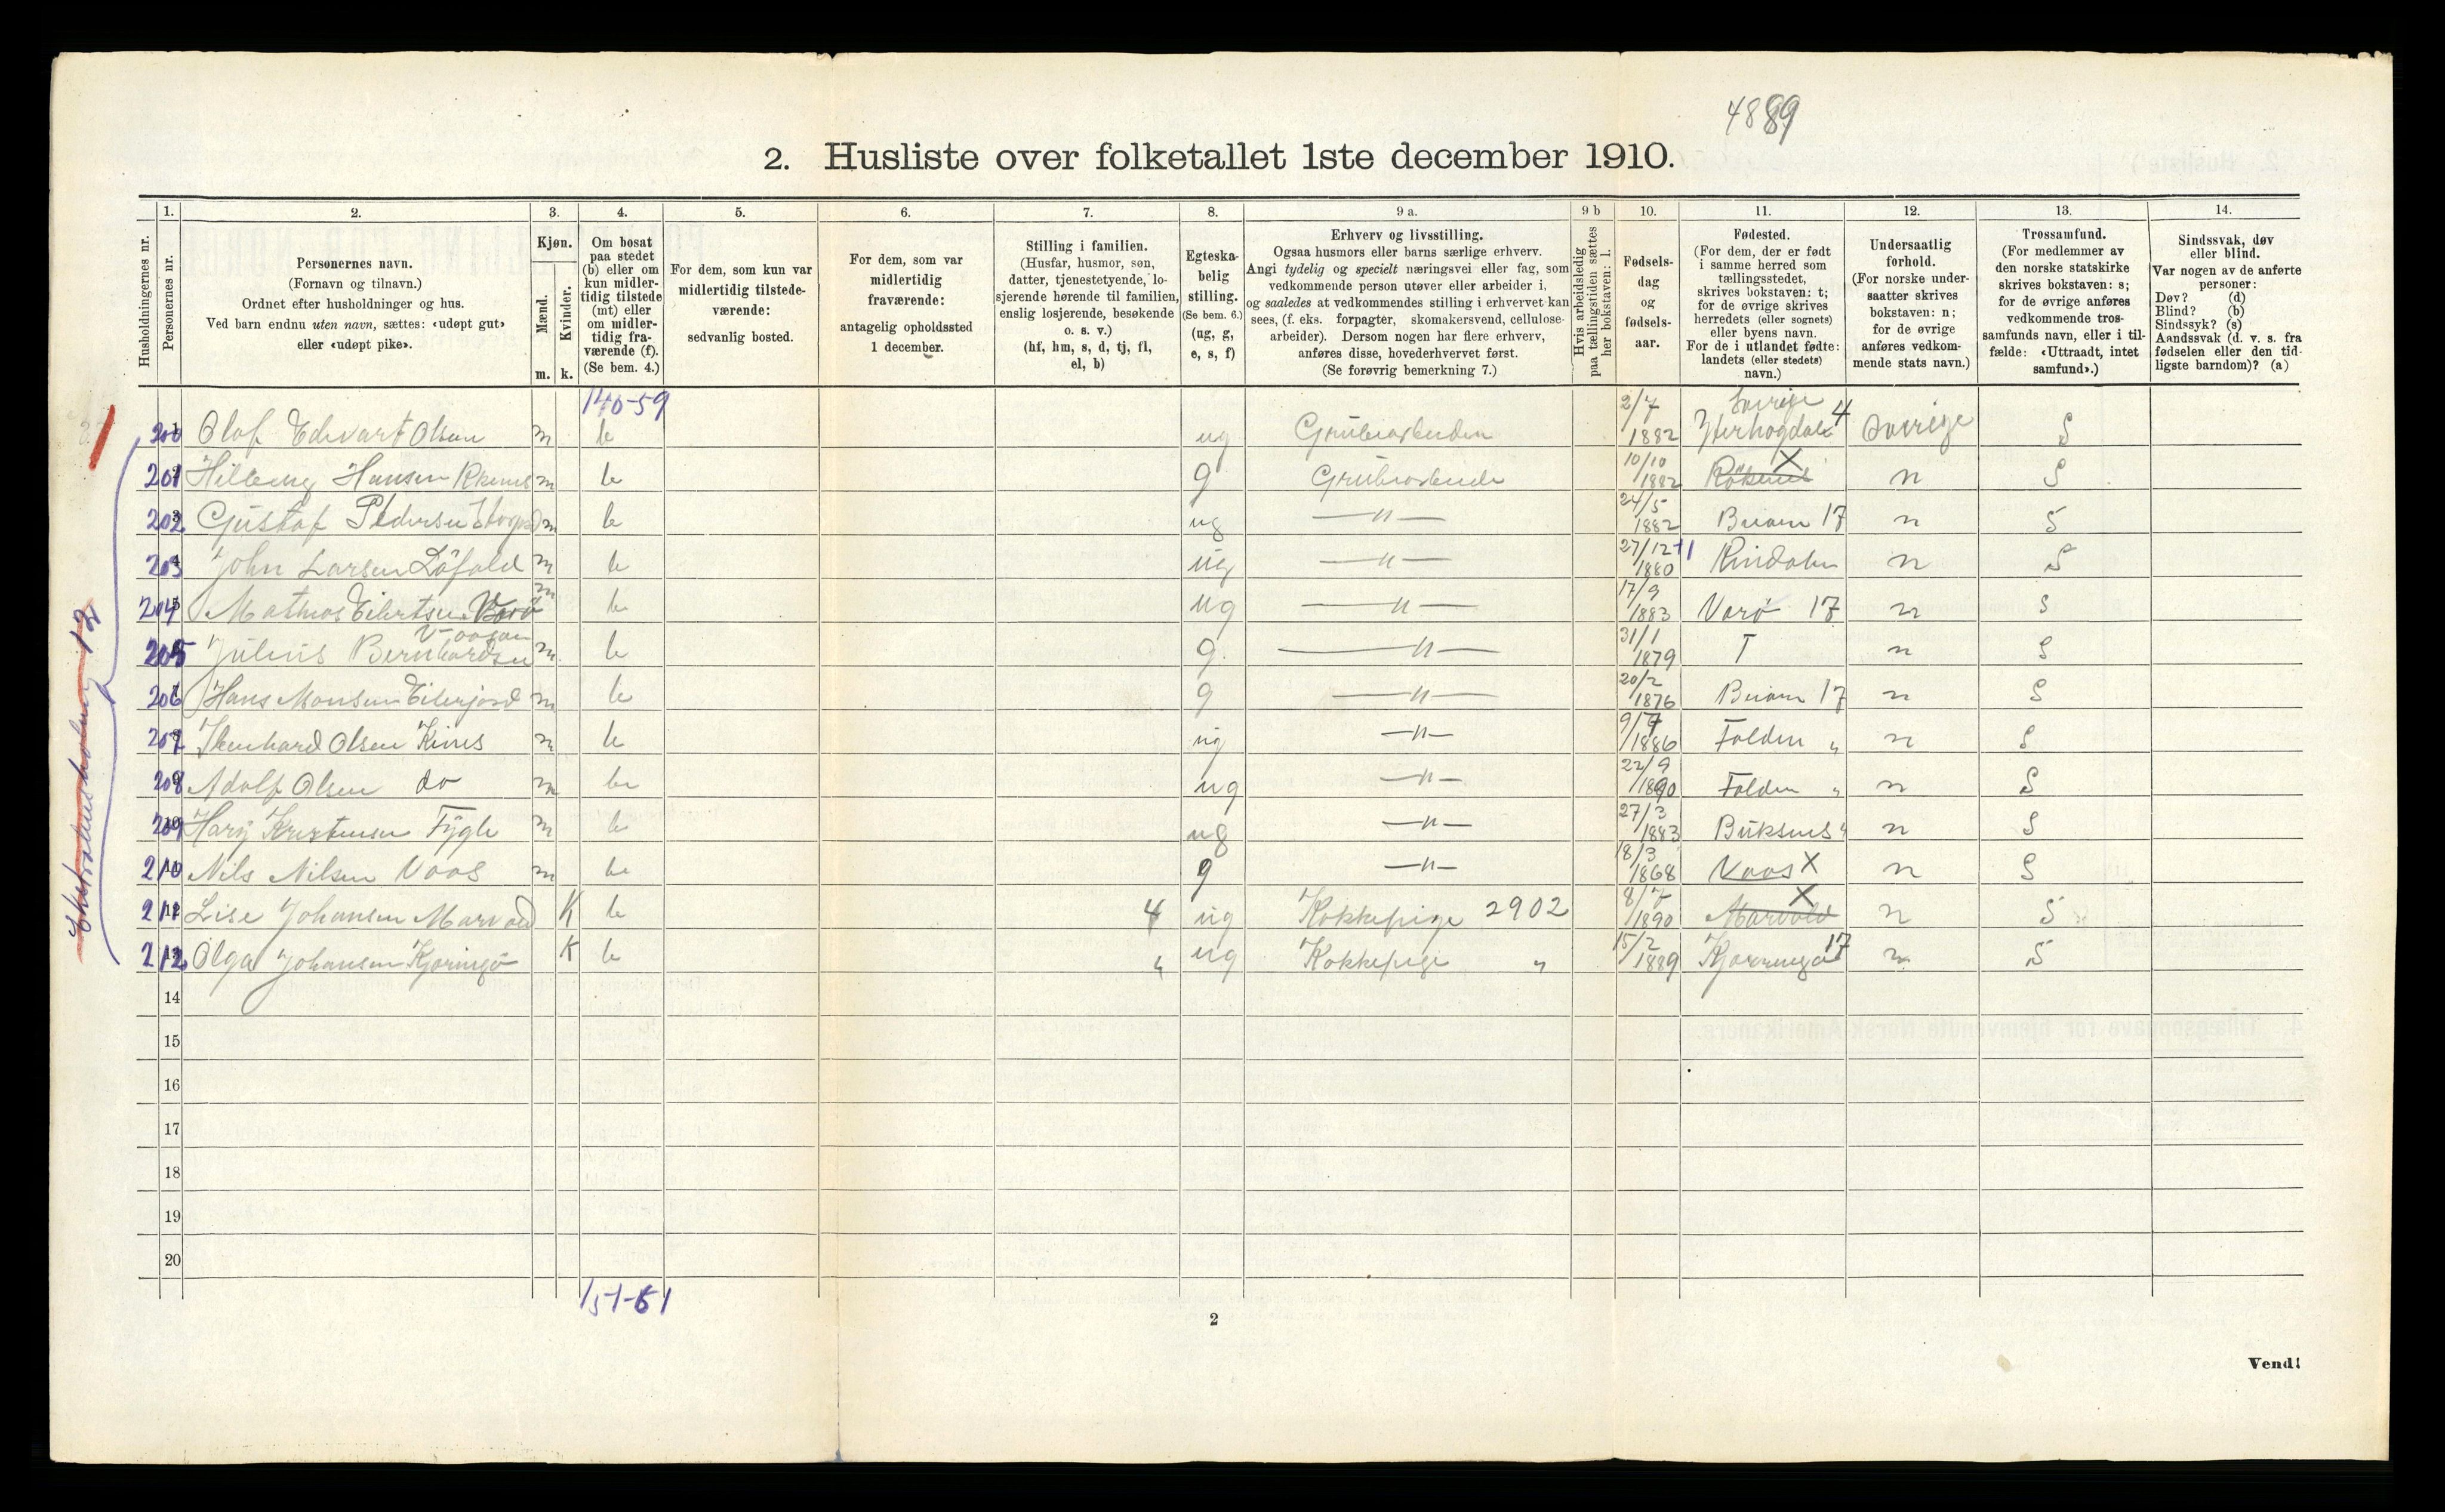 4889
2. Husliste over folketallet 1ste december 1910.
Husholdningernes nr.
1. Personernes nr.
2. Personernes navn.
(Fornavn og tilnavn.)
Ordnet efter husholdninger og hus.
Ved barn endnu uten navn, sættes: «udøpt gut»
eller «udøpt pike».
3. Kjøn.
Mænd. m.
Kvinder. k.
4. Om bosat
paa stedet
(b) eller om
kun midler-
tidig tilstede
(mt) eller
om midler-
tidig fra-
værende (f).
(Se bem. 4.)
5. For dem, som kun var
midlertidig tilstede-
værende:
sedvanlig bosted.
6. For dem, som var
midlertidig
fraværende:
antagelig opholdssted
1 december.
7. Stilling i familien.
(Husfar, husmor, søn,
datter, tjenestetyende, lo-
sjerende hørende til familien,
enslig losjerende, besøkende
o. s. v.)
(hf, hm, s, d, tj, fl,
el, b)
8. Egteska-
belig
stilling.
(Se bem. 6.)
(ug, g,
e, s, f)
9 a. Erhverv og livsstilling.
Ogsaa husmors eller barns særlige erhverv.
Angi tydelig og specielt næringsvei eller fag, som
vedkommende person utøver eller arbeider i,
og saaledes at vedkommendes stilling i erhvervet kan
sees, (f. eks. forpagter, skomakersvend, cellulose-
arbeider). Dersom nogen har flere erhverv,
anføres disse, hovederhvervet først.
(Se forøvrig bemerkning 7.)
9 b Hvis arbeidsledig
paa tællingstiden sættes
her bokstaven: l.
10. Fødsels-
dag
og
fødsels-
aar.
11. Fødested.
(For dem, der er født
i samme herred som
tællingsstedet,
skrives bokstaven: t;
for de øvrige skrives
herredets (eller sognets)
eller byens navn.
For de i utlandet fødte:
landets (eller stedets)
navn.)
12. Undersaatlig
forhold.
(For norske under-
saatter skrives
bokstaven: n;
for de øvrige
anføres vedkom-
mende stats navn.)
13. Trossamfund.
(For medlemmer av
den norske statskirke
skrives bokstaven: s;
for de øvrige anføres
vedkommende tros-
samfunds navn, eller i til-
fælde: «Uttraadt, intet
samfund».)
14. Sindssvak, døv
eller blind.
Var nogen av de anførte
personer:
Døv? (d)
Blind? (b)
Sindssyk? (s)
Aandssvak (d. v. s. fra
fødselen eller den tid-
ligste barndom)? (a)
140-59
200 Olaf Edvart Olsen m b ug Grubearbeiden 2/7 1882 Sverige Ytterhogdal 4 Sverige S
201 Hansen m b g Grubearbeide 10/10 1882 X n S
202 Gustaf Pedersen m b ug —"— 24/5 1882 Beiarn 17 n S
203 John Larsen Löfald m b ug —"— 27/12 1880 11 Rindalen n S
204 Mathias Eilertsen Værö m b ug —"— 17/9 1883 Værö 17 n S
205 Julius Bernhardsen Vaagan m b g —"— 31/1 1879 T n S
206 Hans Monsen Eiterjord m b g —"— 20/2 1876 Beiarn 17 n S
207 Olsen Kines m b ug —"— 9/7 1886 Folden " n S
208 Adolf Olsen do m b ug —"— 22/9 1890 Folden " n S
209 Harij Kristensen Fygle m b ug —"— 27/3 1883 Buksnes " n S
210 Nils Nilsen Voos m b g —"— 18/3 1868 Voos X n S
211 Lise Johansen Marvold K b 4 ug Kokkepige 2902 8/7 1890 Marvold X n S
212 Olga Johansen Kjeringö K b " ug Kokkepige " 15/2 1889 Kjerringö 17 n S
14
15
16
17
18
19
20
151-61
2
Vend!